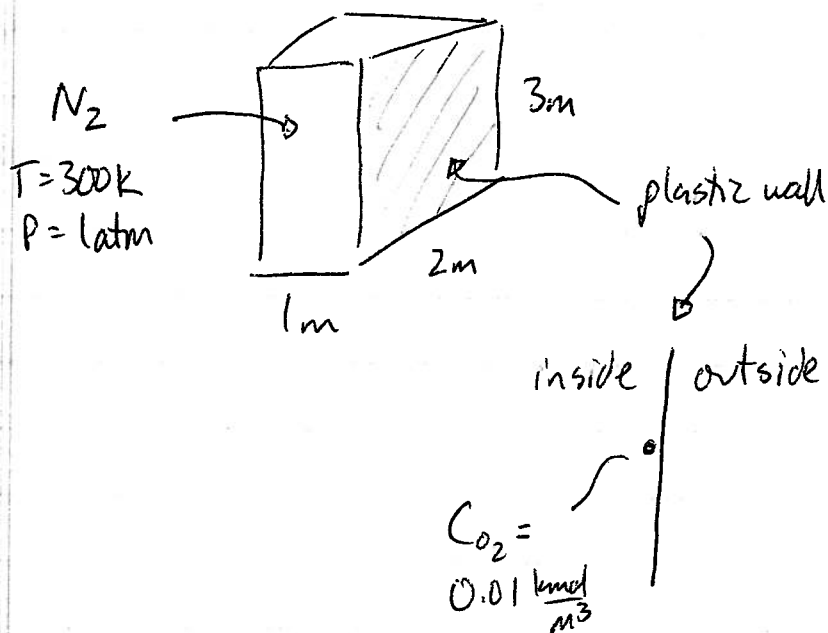 N₂
T=300K
P=1atm
3m
2m
1m
plastic wall
inside | outside
C_O₂ =
0.01 kmol/m³